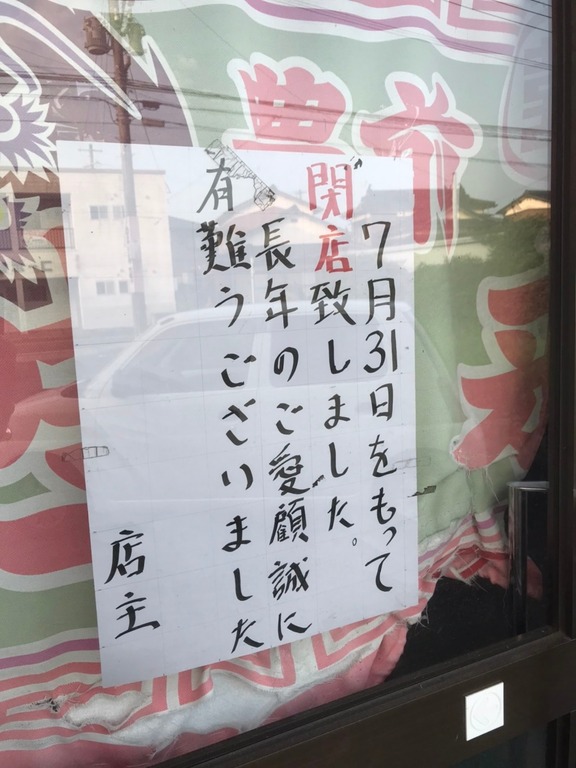 7月31日をもって
閉店致しました。
長年のご愛顧誠に
有難うございました
店主